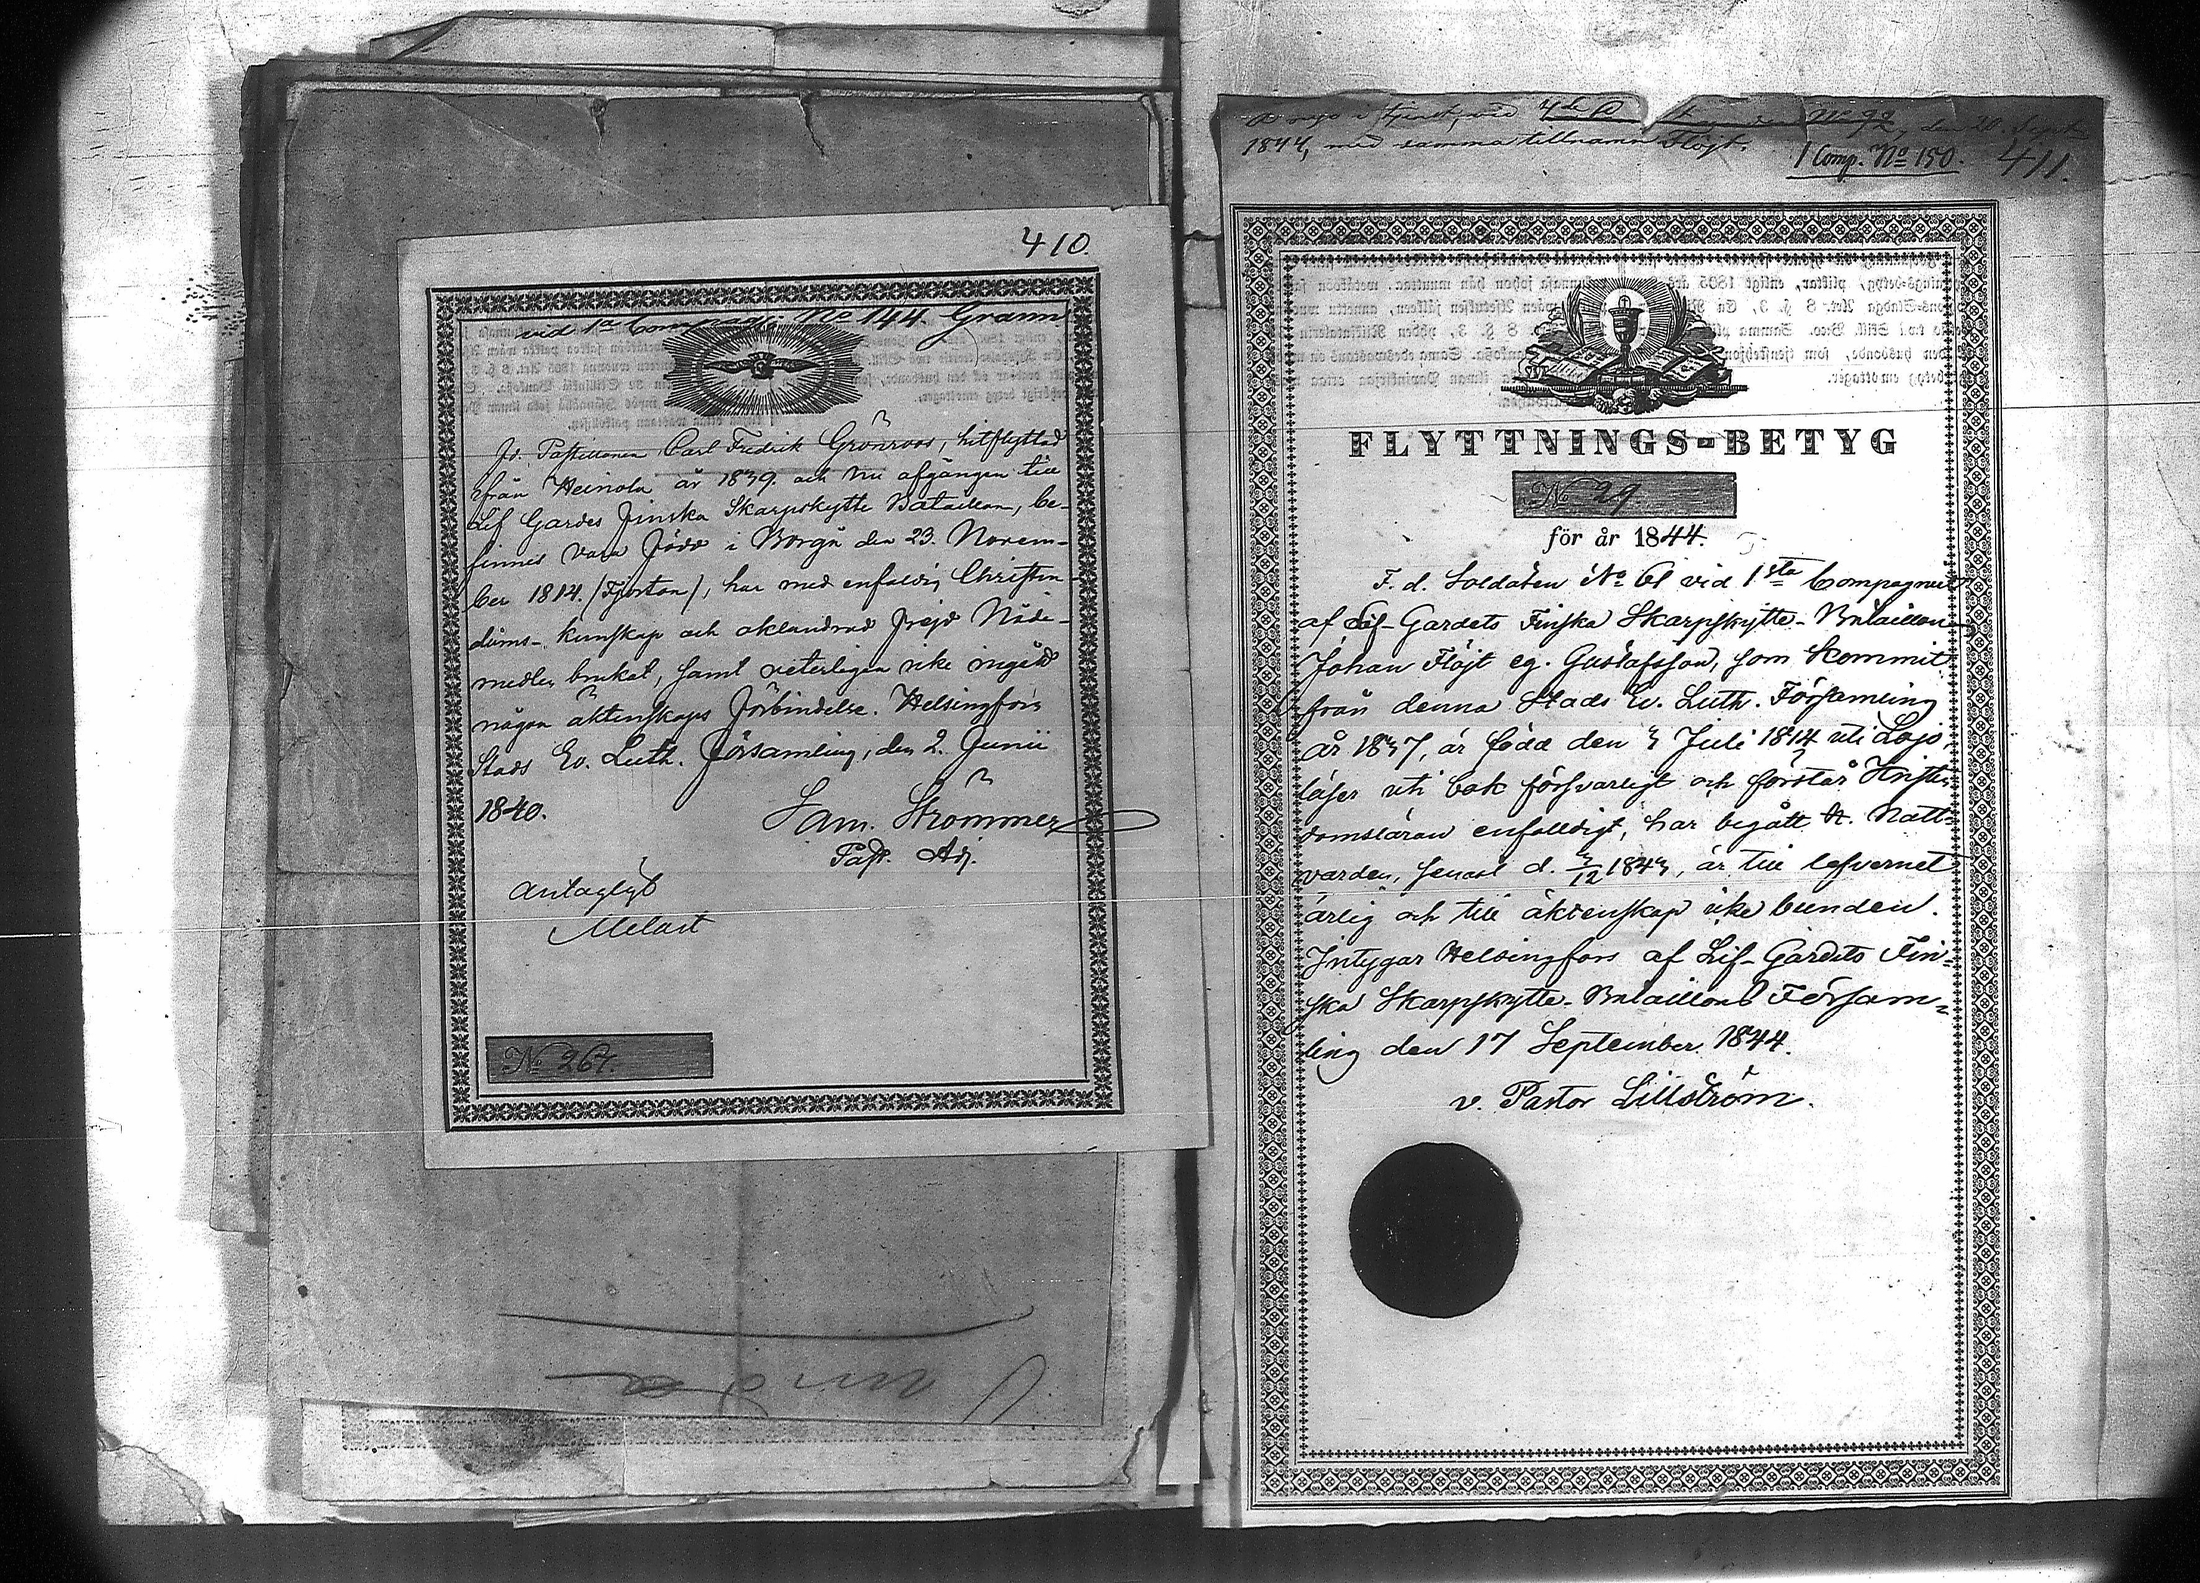 410.
vid 1a Compagni No 144. Grann
Fd. Postillonen Carl Fredrik Grönroos, hitflyttad
ifrån Heinola år 1839. och nu afgången till
Lif Gardes Finska Skarpskytte Bataillon, be-
finnes vara född i Borgå den 23. Novem-
ber 1814. (Fjorton), har med enfaldig Christen-
doms- kunskap och oklandrad frejd Nåde-
medlen brukat, samt veterligen icke ingått
någon äktenskaps förbindelse. Helsingfors
Stads Ev. Luth. Församling, den 2. Junii
1840.
Sam. Strömmer
Past. Adj.
Antaglig
Melart
No 264.
i tjenst, vid 4de No 92, den 20. Sept.
1844, med samma tillnamn Flöjt.
1 Comp. No 150.
411.
FLYTTNINGS-BETYG
No 29
för år 1844.
F. d. Soldaten No 61 vid 1sta Compagniet
af Lif-Gardets Finska Skarpskytte-Bataillon
Johan Flöjt eg. Gustafsson, som kommit
från denna Stads Ev. Luth. Församling
år 1837, är född den 3 Juli 1814 uti Lojo,
läser uti bok försvarligt och förstår Kristen-
domsläran enfaldigt, har begått H. Natt-
varden, senast d. 3/12 1843, är till lefvernet
ärlig och till äktenskap icke bunden.
Intygar Helsingfors af Lif-Gardets Fin-
ska Skarpskytte-Bataillons Försam-
ling den 17 September 1844.
v. Pastor Lillström.